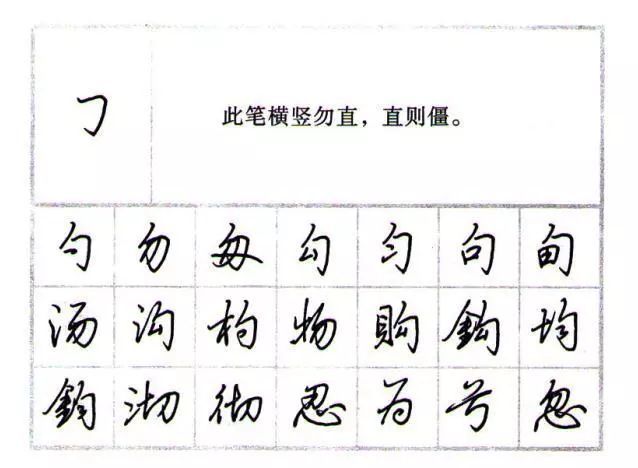 ㇆
此笔横竖勿直，直则僵。
勺 勿 每 勾 匀 句 甸
汤 沟 物 购 鈎 均
鈞 沏 彻 忍 为 号 忽